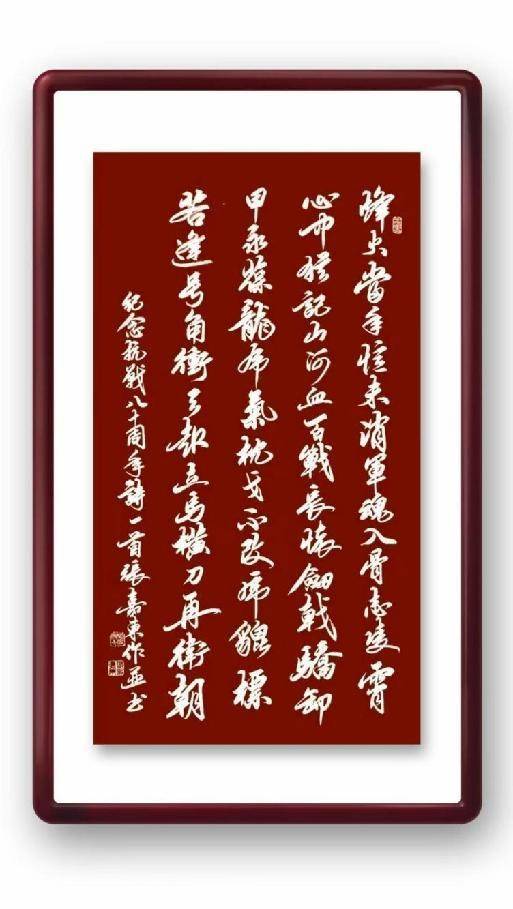 烽火當年憶未消軍魂入骨志凌霄
心中猶記山河血百戰長嘶劍戟驕卸
甲永葆龍虎氣枕戈不改虎貔標
若逢号角衝天起立馬橫刀再衛朝
紀念抗戰八十周年詩一首張嘉東作並书